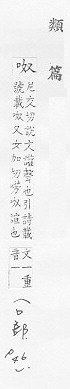 類篇
呶
尼交切説文讙聲也引詩載
號載呶又女加切嘮呶諠也
文一重
音一
(口部
P46.)